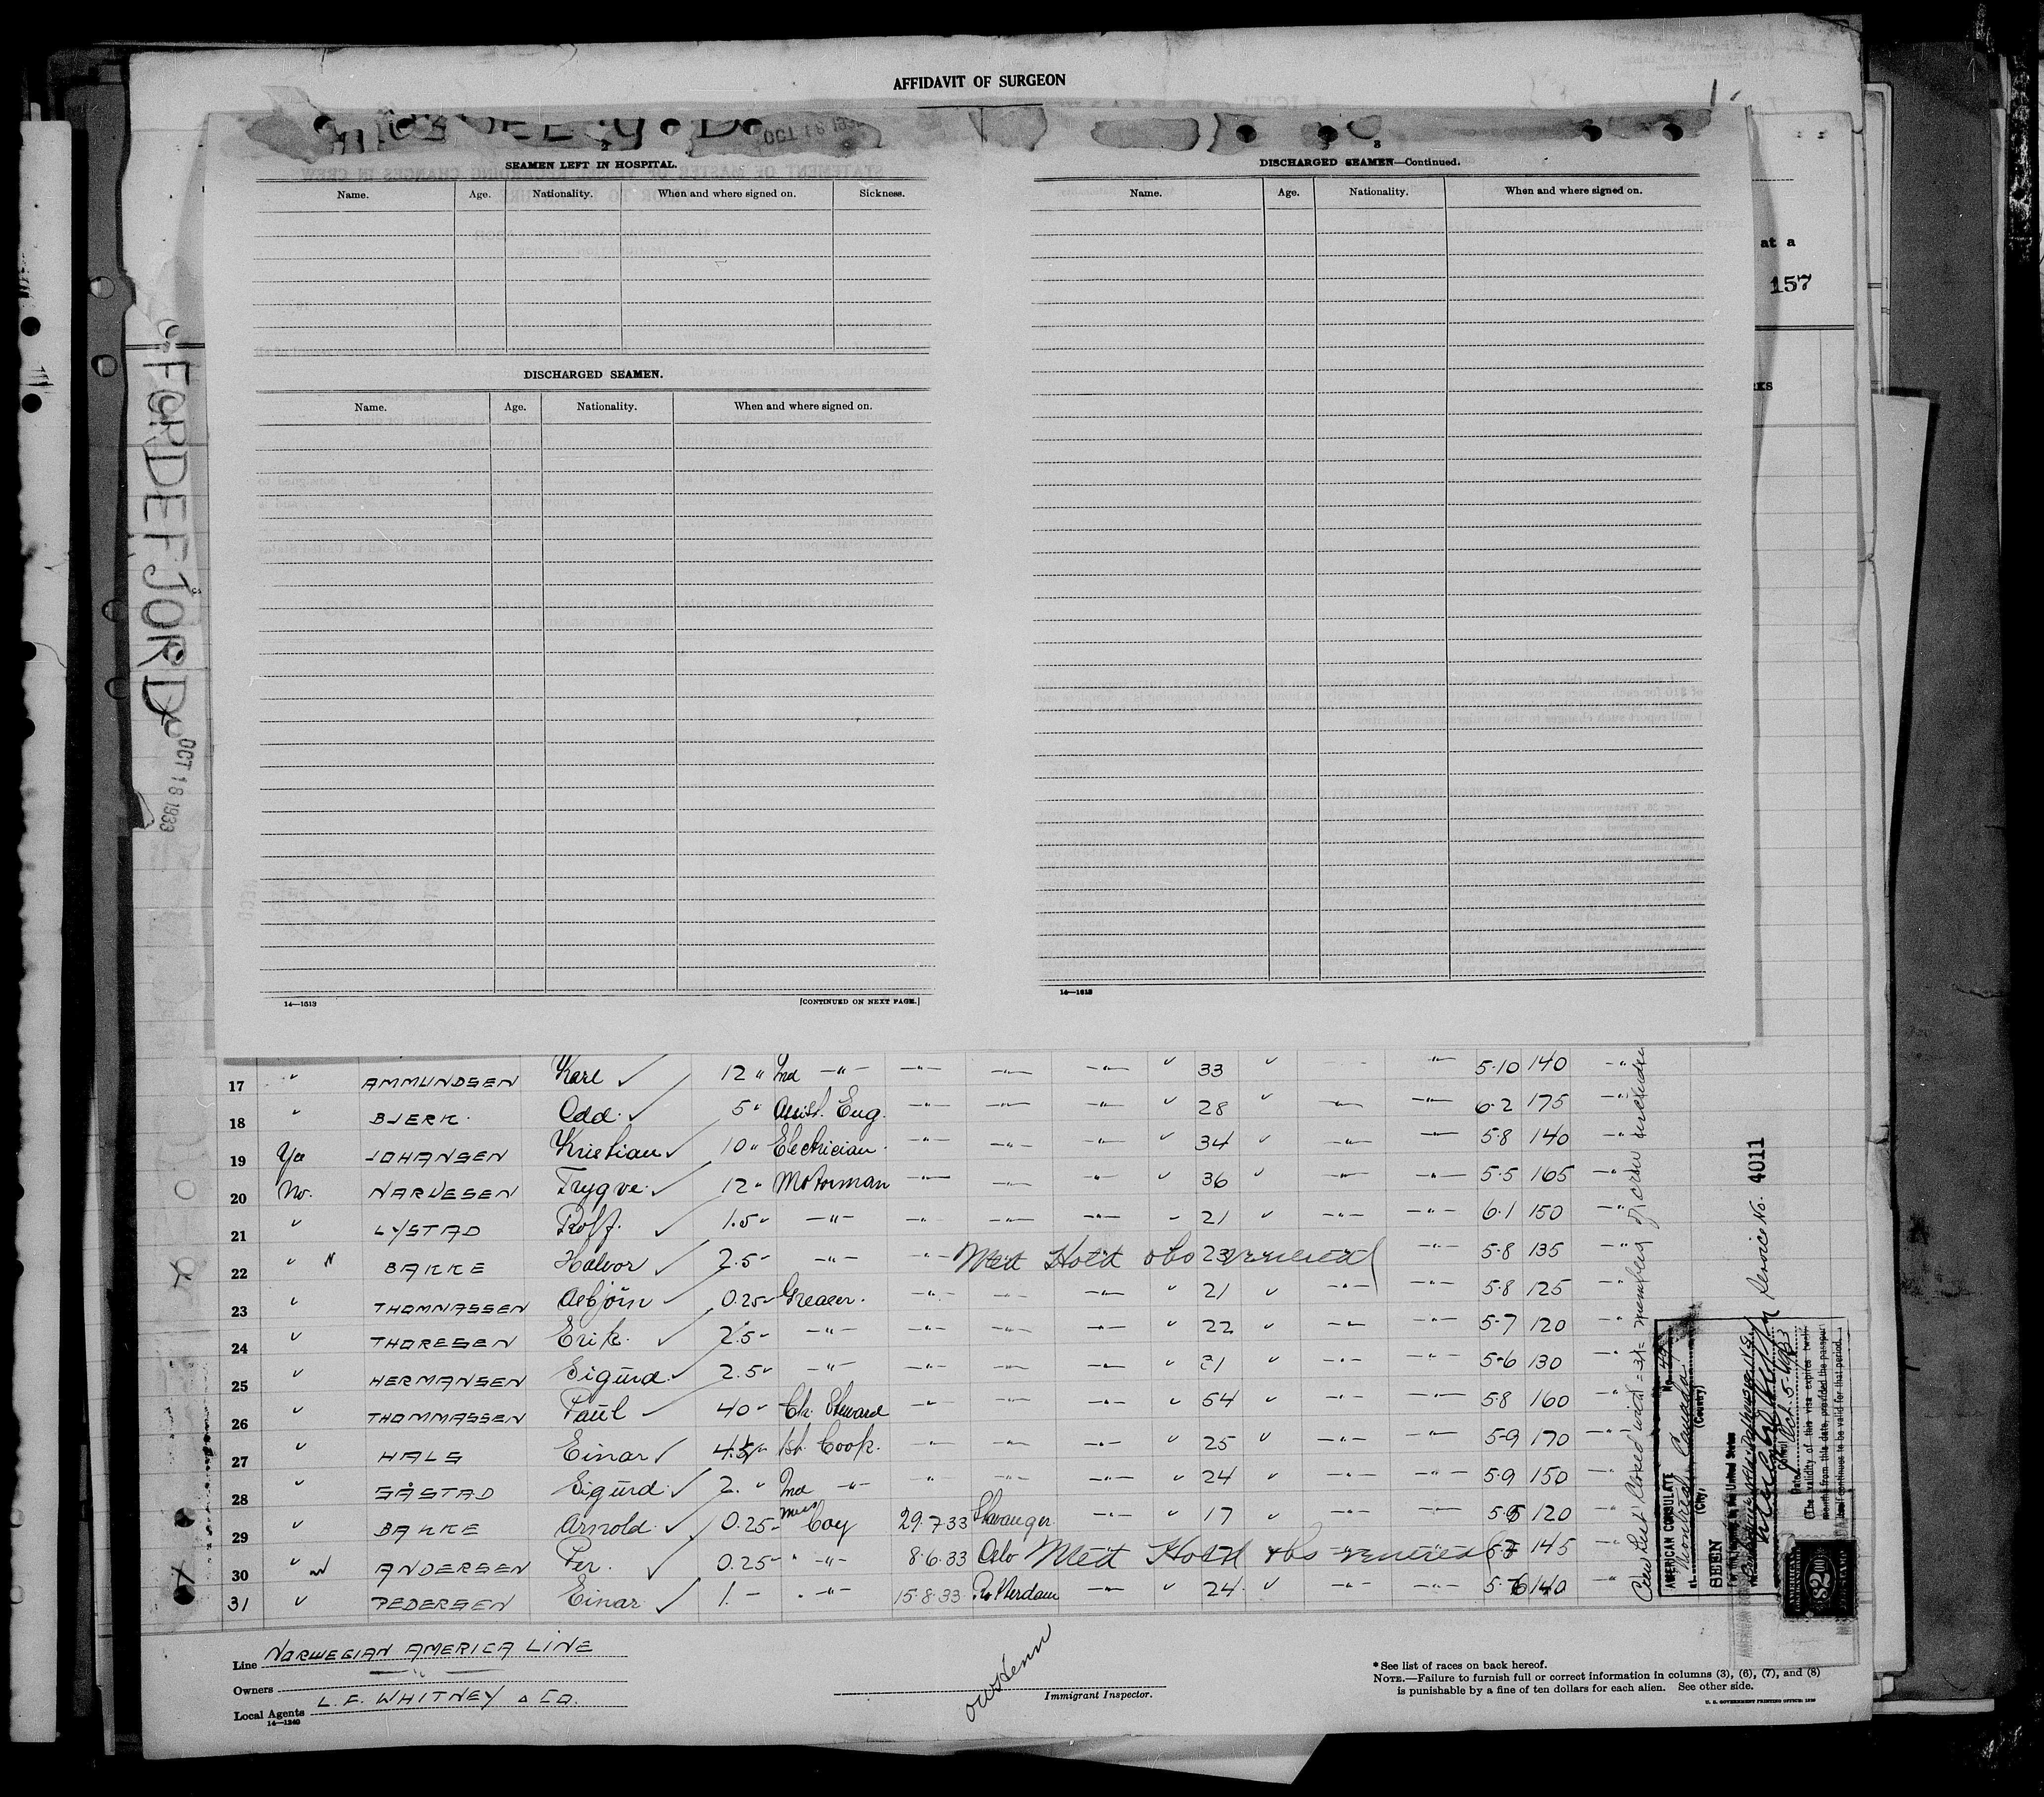 AFFIDAVIT OF SURGEON
OCT 18 19
2
SEAMEN LEFT IN HOSPITAL.
Name. Age. Nationality. When and where signed on. Sickness.
DISCHARGED SEAMEN.
Name. Age. Nationality. When and where signed on.
14—1513 [CONTINUED ON NEXT PAGE.]
3
DISCHARGED SEAMEN—Continued.
Name. Age. Nationality. When and where signed on.
14—1513
at a
157
RKS
FORDEFJORD
OCT 18 1933
17 " AMMUNDSEN Karl ✓ 12 " 2nd -"- -"- -"- -"- " 33 " -"- 5-10 140 -"-
18 " BJERK. Odd. ✓ 5 " Assist. Eng. -"- -"- -"- " 28 " -"- -"- 6-2 175 -"-
19 Yes JOHANSEN Kristian ✓ 10 " Electrician. -"- -"- -"- " 34 " -"- -"- 5-8 140 -"-
20 No. NARVESEN Trygve. ✓ 12 " Motorman -"- -"- -"- " 36 " -"- -"- 5-5 165 -"-
21 " LYSTAD Rolf. ✓ 1.5 " -"- -"- -"- -"- " 21 " -"- -"- 6-1 150 -"-
22 " BAKKE Halvor ✓ 2.5 " -"- -"- Med Hold obs 23 venereal -"- 5-8 135 -"-
23 " THOMNASSEN Asbjörn ✓ 0.25 " Greaser. -"- -"- -"- " 21 " -"- -"- 5-8 125 -"-
24 " THORESEN Erik. ✓ 2.5 " -"- -"- -"- -"- " 22 " -"- -"- 5-7 120 -"-
25 " HERMANSEN Sigurd ✓ 2.5 " -"- -"- -"- -"- " 21 " -"- -"- 5-6 130 -"-
26 " THOMMASSEN Paul ✓ 40 " Ch. Steward -"- -"- -"- " 54 " -"- -"- 5-8 160 -"-
27 " HALS Einar ✓ 4.5 " 1st. Cook. -"- -"- -"- " 25 " -"- -"- 5-9 170 -"-
28 " SÅSTAD Sigurd ✓ 2. " 2nd -"- " -"- -"- " 24 " -"- -"- 5-9 150 -"-
29 " BAKKE Arnold. ✓ 0.25 " mess boy 29.7.33 Stavanger -"- " 17 " -"- -"- 5-5 120 -"-
30 " ANDERSEN Per. ✓ 0.25 " " -"- 8.6.33 Oslo Med Hold obs venereal 5-7 145 -"-
31 " PEDERSEN Einar ✓ 1. - " -"- 15.8.33 Rotterdam -"- " 24 " -"- -"- 5-6 140 -"-
Line NORWEGIAN AMERICA LINE
Owners -"-
Local Agents L. F. WHITNEY & CO.
14—1240
Immigrant Inspector.
* See list of races on back hereof.
NOTE.—Failure to furnish full or correct information in columns (3), (6), (7), and (8)
is punishable by a fine of ten dollars for each alien. See other side.
U. S. GOVERNMENT PRINTING OFFICE: 1930
Crew list closed with =31= members of crew included
AMERICAN CONSULATE No.
at Montreal, Canada
(City) (Country)
SEEN
For the journey to the United States
Date Oct. 5-1933
(The validity of this visa expires twelve
months from this date, provided the passport
itself continues to be valid for that period.)
Service No. 4011
AMERICAN
$2.00